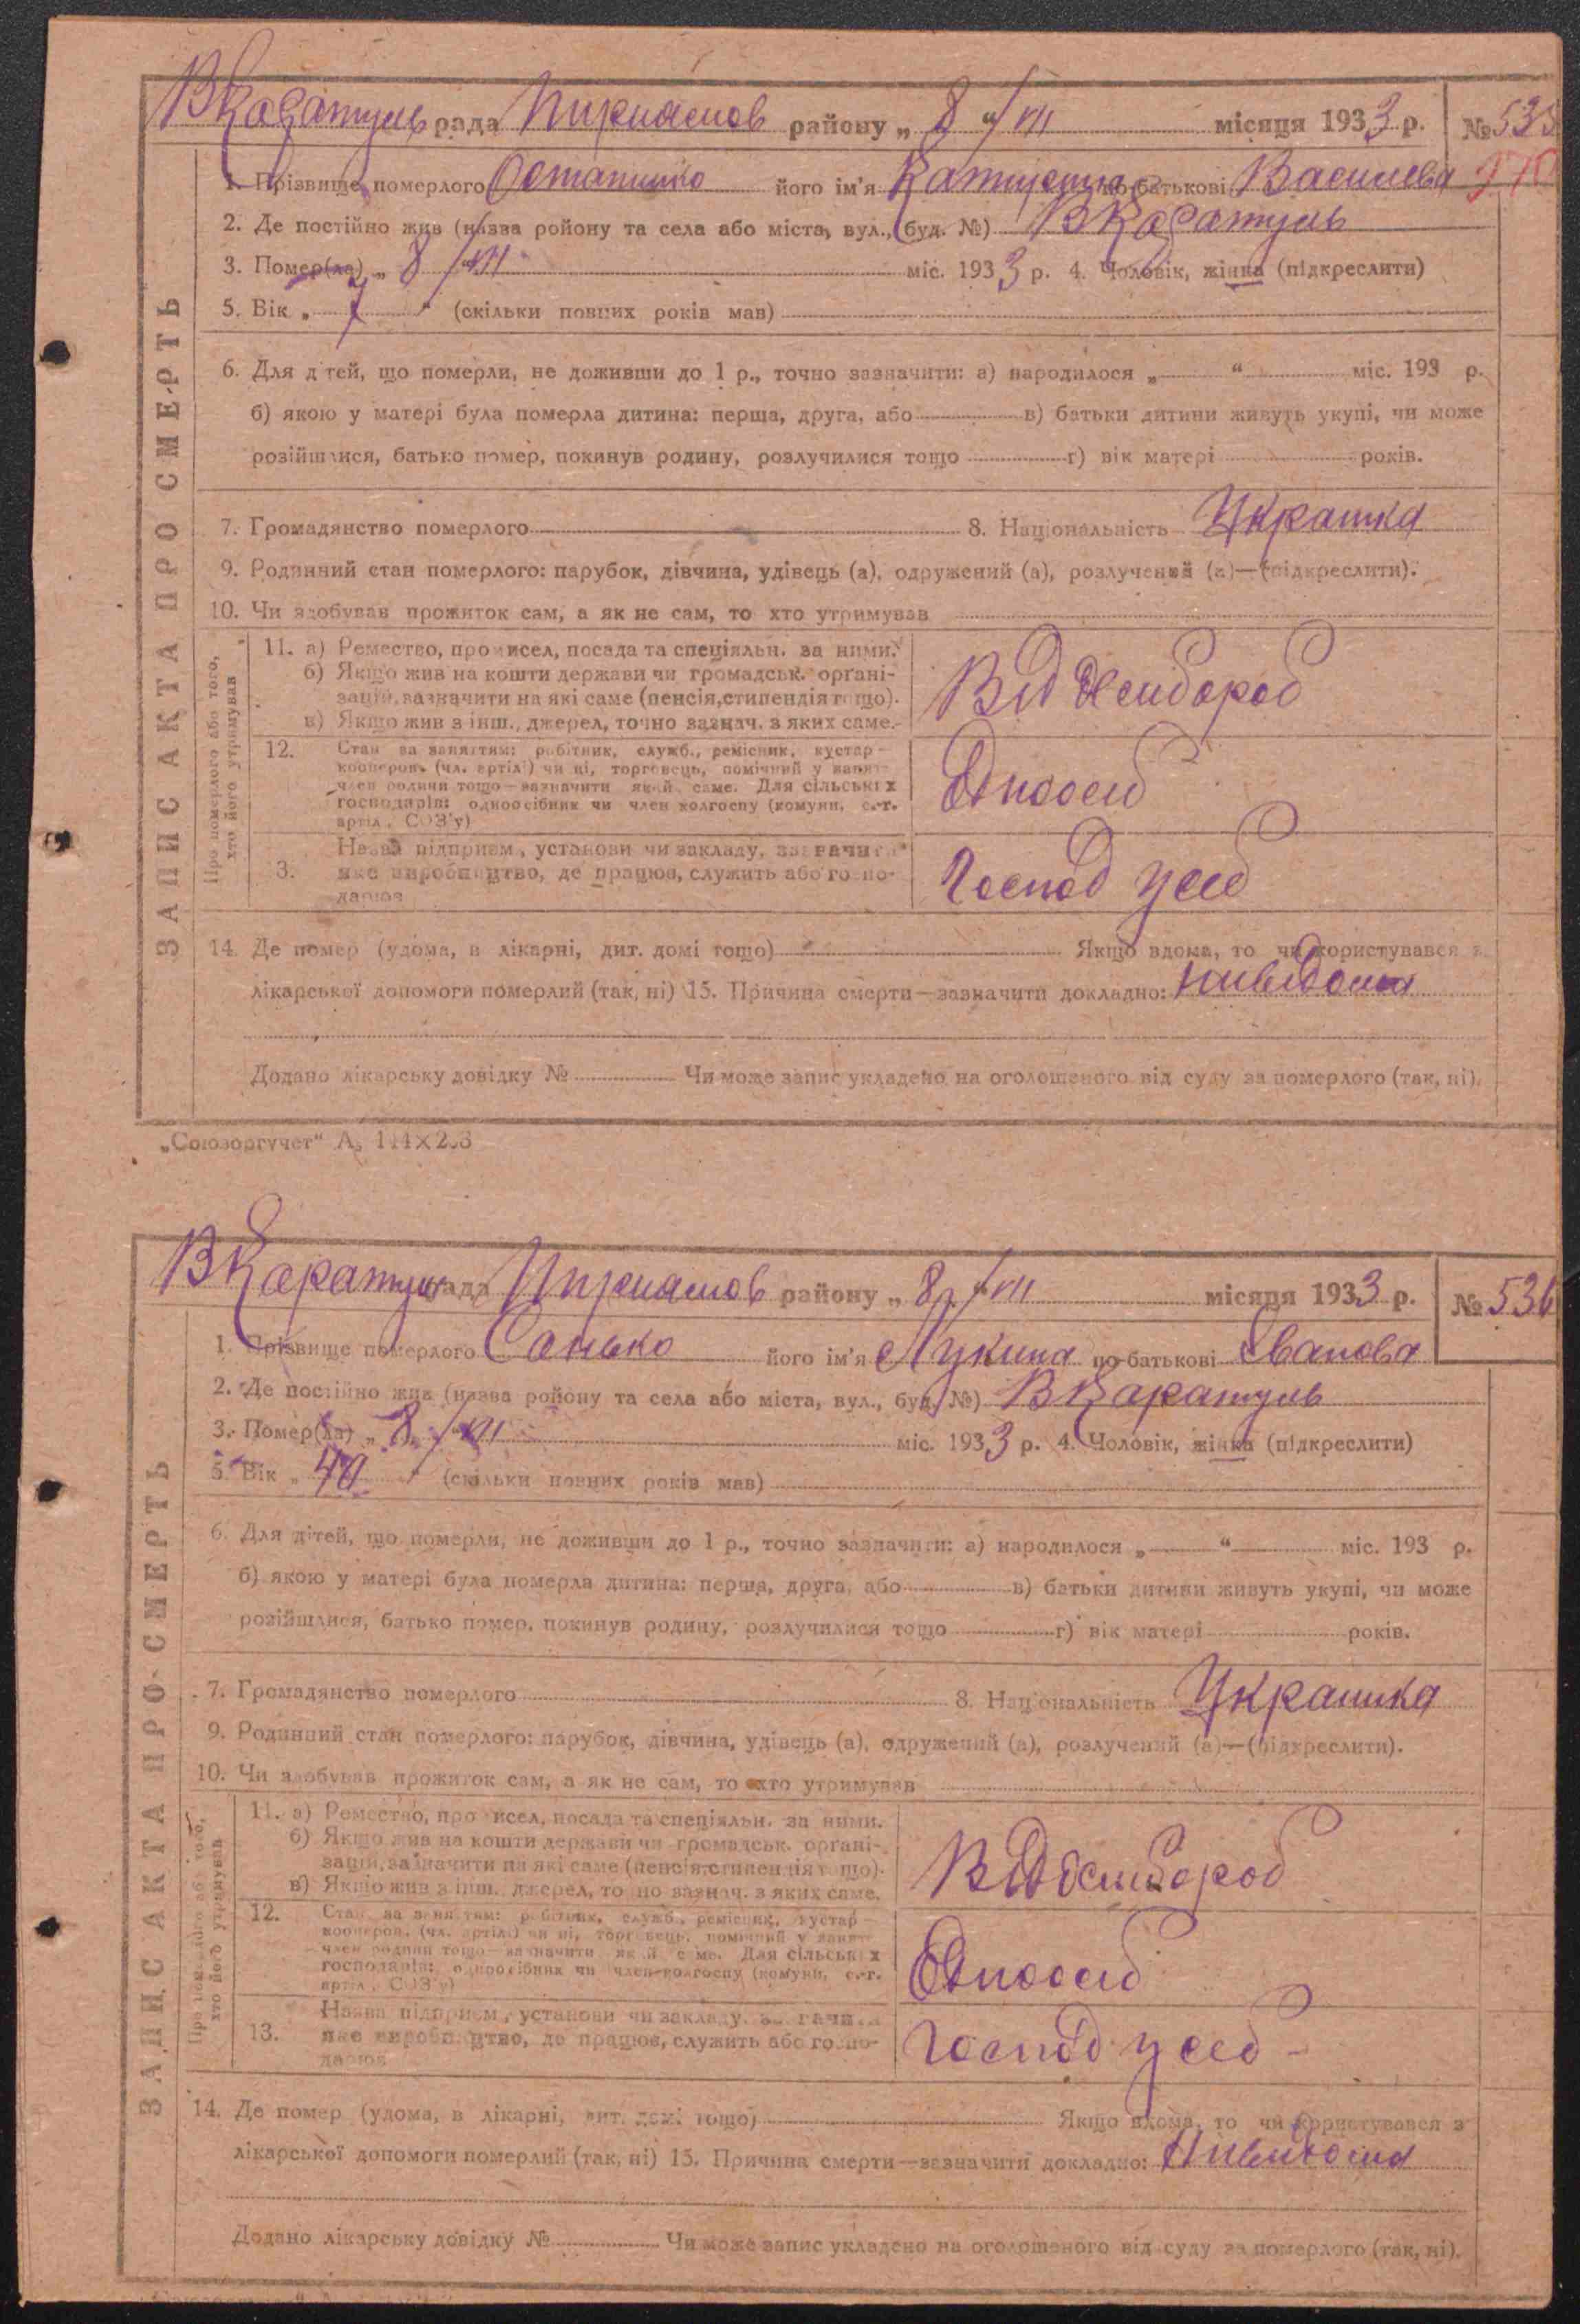 ЗАПИС АКТА ПРО СМЕРТЬ
ВКаратуль рада района „ 8 “ / VII місяця 1933 р. № 535
1. Прізвище померлого його ім'я по-батькові Василева
2. Де постійно жив (назва ройону та села або міста, вул., буд. №) ВКаратуль
3. Помер(ла) „ 8 “ / VII міс. 1933 р. 4. Чоловік, жінка (підкреслити)
5. Вік „ 7 “ (скільки повних років мав)
6. Для дітей, що померли, не доживши до 1 р., точно зазначити: а) народилося „ “ міс. 193 р.
б) якою у матері була померла дитина: перша, друга, або в) батьки дитини живуть укупі, чи може
розійшлися, батько помер, покинув родину, розлучилися тощо г) вік матері років.
7. Громадянство померлого 8. Національність Украінка
9. Родинний стан померлого: парубок, дівчина, удівець (а), одружений (а), розлучений (а)—(підкреслити).
10. Чи здобував прожиток сам, а як не сам, то хто утримував
Про померлого або того, хто його утримував
11. а) Ремество, промисел, посада та спеціяльн. за ними.
б) Якщо жив на кошти держави чи громадськ. органі-
зацій, зазначити на які саме (пенсія, стипендія тощо).
в) Якщо жив з інш. джерел, точно зазнач. з яких саме.
12. Стан за заняттям: робітник, служб., ремісник, кустар—
кооперов. (чл. артілі) чи ні, торговець, помічний у занят—
член родини тощо—зазначити який саме. Для сільських
господарів: одноосібник чи член колгоспу (комуни, с.-г.
артіл., СОЗ'у)
Одноосіб
3. Назва підприєм., установи чи закладу, зазначити
яке виробництво, де працює, служить або госпо-
дарює
Господ у себ
14. Де помер (удома, в лікарні, дит. домі тощо) Якщо вдома, то чи користувався з
лікарської допомоги померлий (так, ні) 15. Причина смерти—зазначити докладно: Нивідома
Додано лікарську довідку № Чи може запис укладено на оголошеного від суду за померлого (так, ні).
„Союзоргучет“
ЗАПИС АКТА ПРО СМЕРТЬ
ВКаратуль рада району „ 8 “ / VII місяця 1933 р. № 536
1. Прізвище померлого Санько його ім'я Лукина по-батькові Іванова
2. Де постійно жив (назва ройону та села або міста, вул., буд. №) ВКаратуль
3. Помер(ла) „ 8 “ / VII міс. 1933 р. 4. Чоловік, жінка (підкреслити)
5. Вік „ 40 “ (скільки повних років мав)
6. Для дітей, що померли, не доживши до 1 р., точно зазначити: а) народилося „ “ міс. 193 р.
б) якою у матері була померла дитина: перша, друга, або в) батьки дитини живуть укупі, чи може
розійшлися, батько помер, покинув родину, розлучилися тощо г) вік матері років.
7. Громадянство померлого 8. Національність Украінка
9. Родинний стан померлого: парубок, дівчина, удівець (а), одружений (а), розлучений (а)—(підкреслити).
10. Чи здобував прожиток сам, а як не сам, то хто утримував
Про померлого або того, хто його утримував
11. а) Ремество, промисел, посада та спеціяльн. за ними.
б) Якщо жив на кошти держави чи громадськ. органі-
зацій, зазначити на які саме (пенсія, стипендія тощо).
в) Якщо жив з інш. джерел, точно зазнач. з яких саме.
12. Стан за заняттям: робітник, служб., ремісник, кустар—
кооперов. (чл. артілі) чи ні, торговець, помічний у занят—
член родини тощо—зазначити який саме. Для сільських
господарів: одноосібник чи член колгоспу (комуни, с.-г.
артіл., СОЗ'у)
Одноосіб
13. Назва підприєм., установи чи закладу, зазначити
яке виробництво, де працює, служить або госпо-
дарює
Господ у себ
14. Де помер (удома, в лікарні, дит. домі тощо) Якщо вдома, то чи користувався з
лікарської допомоги померлий (так, ні) 15. Причина смерти—зазначити докладно: Нивідома
Додано лікарську довідку № Чи може запис укладено на оголошеного від суду за померлого (так, ні).